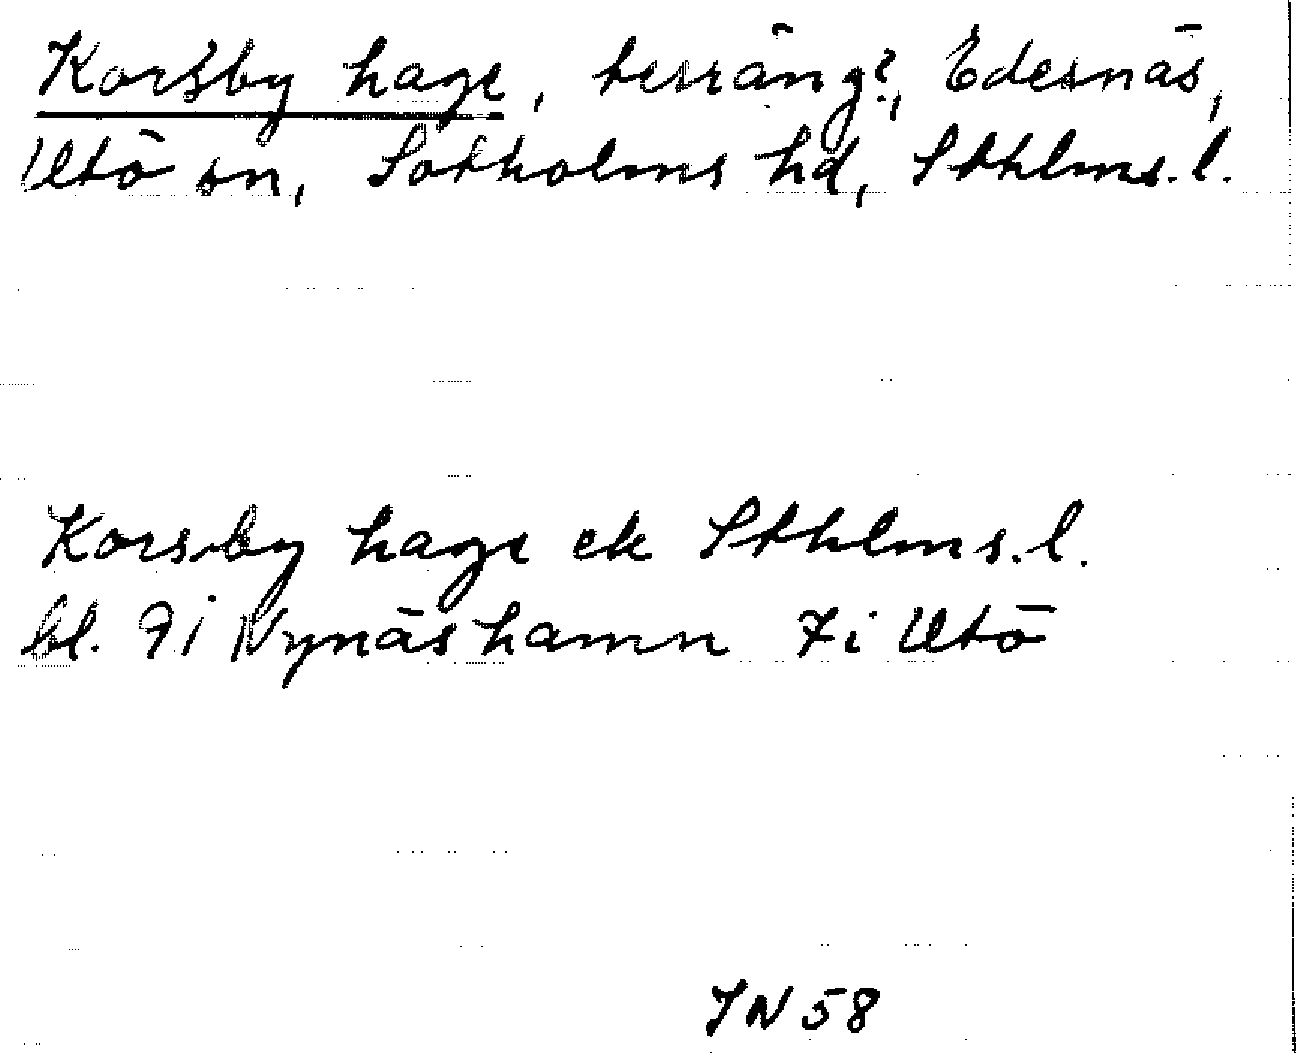 Korsby hage, terräng?, Edesnäs,
Utö sn, Sotholms hd, Sthlms.l.
Korsby hage ek Sthlms.l.
bl. 9i Nynäshamn 7i Utö
IN 58